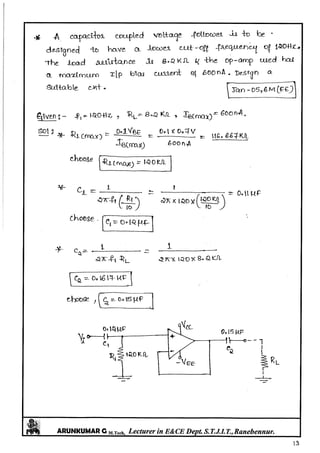 * A capacitor coupled voltage follower is to be
designed to have a lower cut-off frequency of 120Hz.
The load resistance is 8.2 KΩ & the op-amp used has
a maximum I/p bias current of 600nA. Design a
Suitable ckt.
Jan-05, 6M (EE)
Given :- f1 = 120HZ, RL = 8.2 KΩ, IB(max) = 600nA.
Sol : * R1(max) = 0.1 VBE / IB(max) = 0.1 x 0.7V / 600nA = 116.667KΩ
choose R1(max) = 120KΩ
* C1 = 1 / 2π f1 (R1/10) = 1 / 2π x 120 x (120KΩ/10) = 0.11 μF
choose C1 = 0.12 μF
* C2 = 1 / 2π f1 RL = 1 / 2π x 120 x 8.2 KΩ
C2 = 0.1617 μF
choose, C2 = 0.15 μF
0.12μF +VCC 0.15μF
Vi C1 C2
R1 120KΩ -VEE RL
ARUNKUMAR G M.Tech, Lecturer in E&CE Dept. S.T.J.I.T., Ranebennur.
13